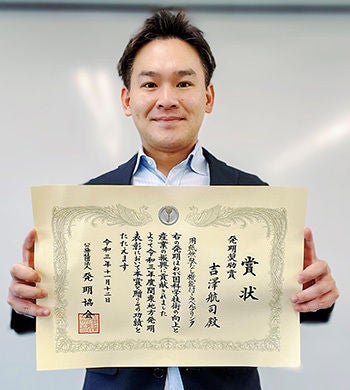 賞状
発明奨励賞
吉澤航司殿
右の発明はわが国科学技術の向上と
産業の振興に貢献されました
よって令和三年度関東地方発明
表彰において本賞を贈りその功績を
たたえます
令和三年十一月十二日
公益社団法人 発明協会